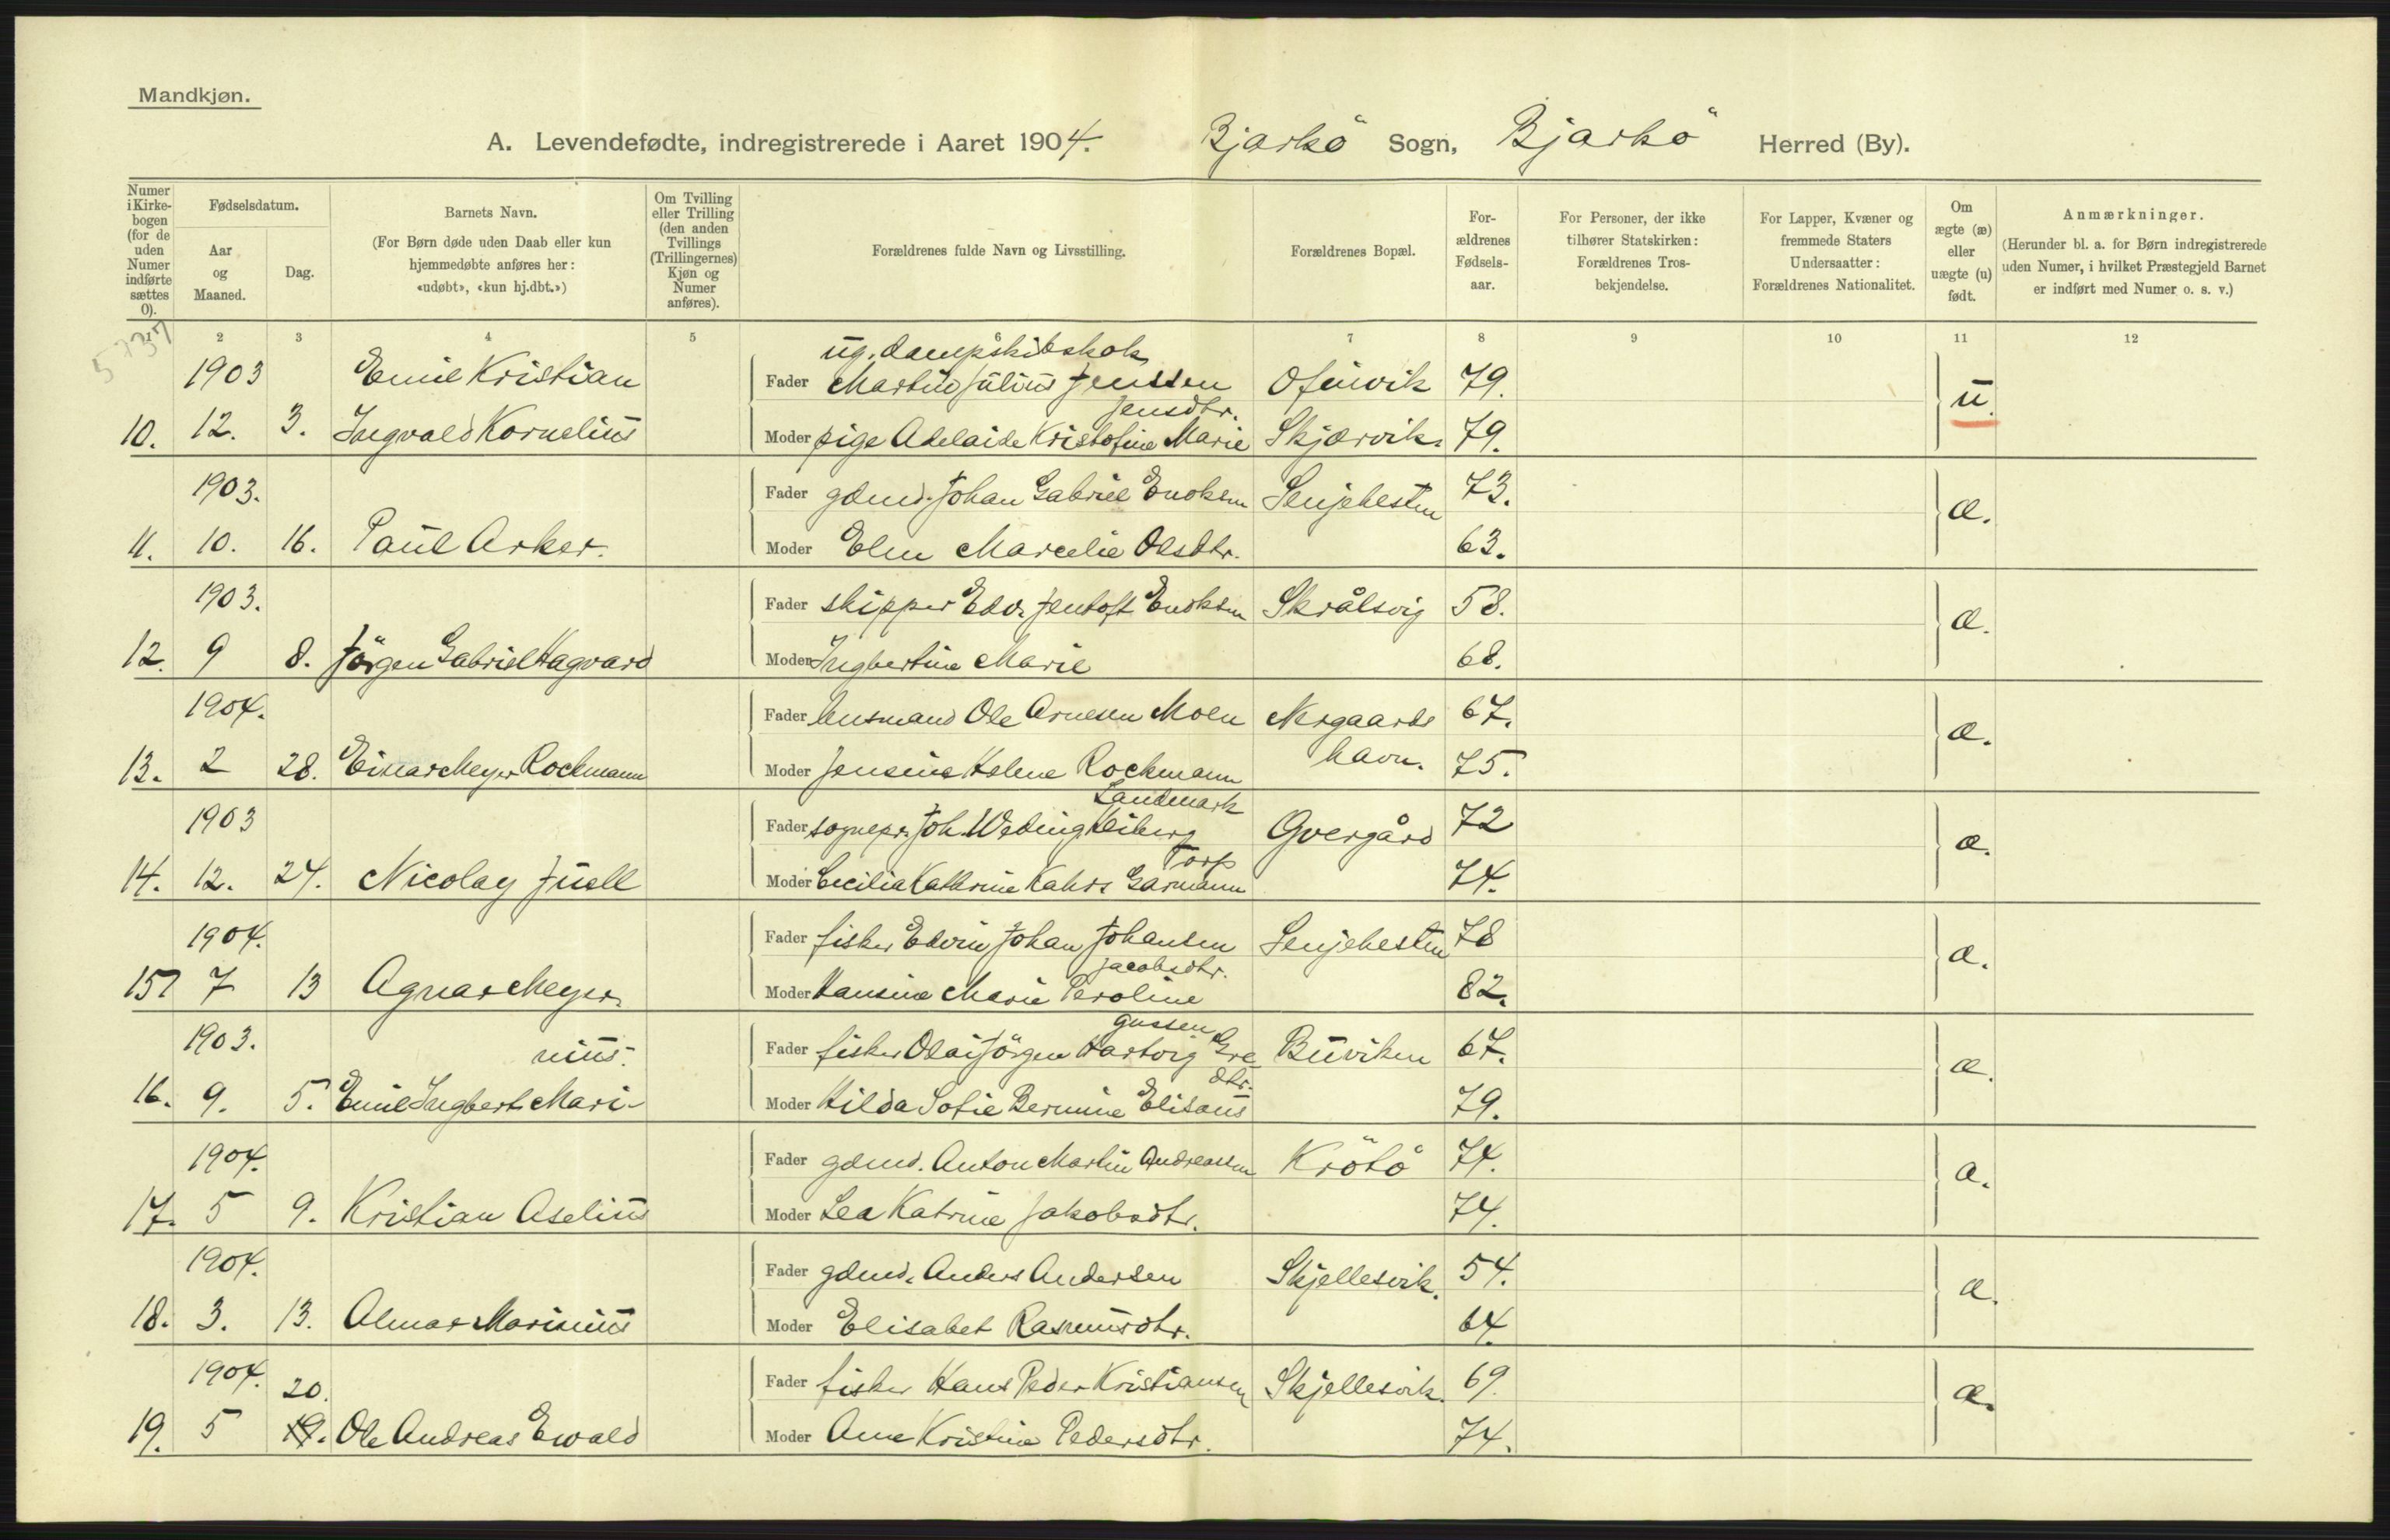 Mandkjøn.
A. Levendefødte, indregistrerede i Aaret 1904. Bjarkö Sogn, Bjarkö Herred (By).
Numer i Kirke-bogen (for de uden Numer indførte sættes 0).
Fødselsdatum.
Aar og Maaned.
Dag.
Barnets Navn.
(For Børn døde uden Daab eller kun hjemmedøbte anføres her: «udøbt», «kun hj.dbt.»)
Om Tvilling eller Trilling (den anden Tvillings (Trillingernes) Kjøn og Numer anføres).
Forældrenes fulde Navn og Livsstilling.
Forældrenes Bopæl.
For-ældrenes Fødsels-aar.
For Personer, der ikke tilhører Statskirken: Forældrenes Tros-bekjendelse.
For Lapper, Kvæner og fremmede Staters Undersaatter: Forældrenes Nationalitet.
Om ægte (æ) eller uægte (u) født.
Anmærkninger.
(Herunder bl. a. for Børn indregistrerede uden Numer, i hvilket Præstegjeld Barnet er indført med Numer o. s. v.)
2 3 4 5 6 7 8 9 10 11 12
ug. dampskibskok
1903 Emil Kristian Fader Martin Julius Jenssen 79. u.
Jensdtr.
10. 12. 3. Ingvald Kornelius Moder pige Adelaide Kristofine Marie Skjærvik. 79.
1903. Fader gdmd. Johan Gabriel Enoksen Senjehesten 73. æ.
11. 10. 16. Paul Asker. Moder Elen Marcelie Olsdtr. 63.
1903. Fader skipper Edv. Jentoft Enoksen Skrålsvig 58. æ.
12. 9 8. Jörgen Gabriel Hagvard Moder Ingbertine Marie 68.
1904. Fader lensmand Ole Arnesen Moen Nergaards 67. æ.
13. 2 28. Einar Meyer Rockmann Moder Jensine Helene Rockmann havn. 75.
Landmark
1903 Fader sognepr. Joh. Weding Heiberg Övergård 72 æ.
Torp
14. 12. 24. Nicolay Juell Moder Cecilia Kathrine Kahrs Garmann 74.
1904. Fader fisker Edvin Johan Johansen Senjehesten 78 æ.
Jacobsdtr.
15 7 13 Agnar Meyer. Moder Hansine Marie Peroline 82.
gussen
1903. nius. Fader fisker Olai Jörgen Hartvig Gre Buviken 67. æ.
dtr.
16. 9. 5. Emil Ingbert Mari- Moder Hilda Sofie Bernine Elisæus 79.
1904. Fader gdmd. Anton Martin Andreassen Krötö 74. æ.
17. 5 9. Kristian Aselius Moder Lea Katrine Jakobsdtr. 74.
1904. Fader gdmd. Anders Andersen Skjellesvik. 54. æ.
18. 3. 13. Almar Marinius Moder Elisabet Rasmusdtr. 64
1904. 20. Fader fisker Hans Peder Kristiansen Skjellesvik. 69. æ.
19. 5 19. Ole Andreas Ewald Moder Ane Kristine Pedersdtr. 74.